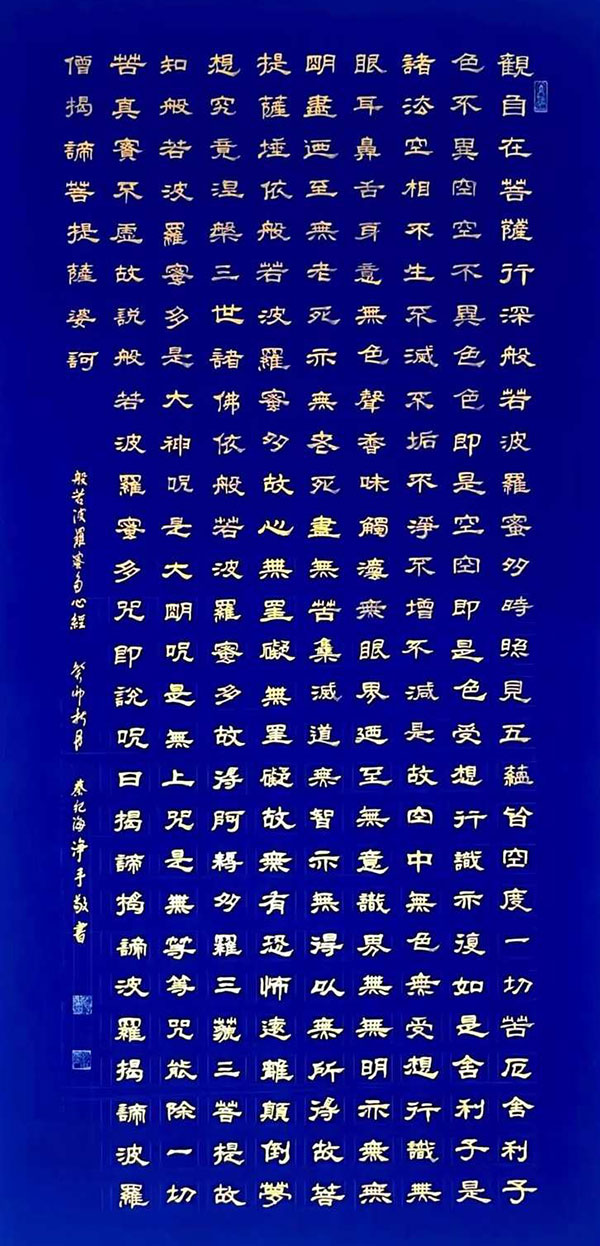 觀自在菩薩行深般若波羅蜜多時照見五蘊皆空度一切苦厄舍利子
色不異空空不異色色即是空空即是色受想行識亦復如是舍利子是
諸法空相不生不滅不垢不淨不增不減是故空中無色無受想行識無
眼耳鼻舌身意無色聲香味觸灋無眼界迺至無意識界無無明亦無無
明盡迺至無老死亦無老死盡無苦集滅道無智亦無得以無所得故菩
提薩埵依般若波羅蜜多故心無罣礙無罣礙故無有恐怖遠離顛倒夢
想究竟涅槃三世諸佛依般若波羅蜜多故得阿耨多羅三藐三菩提故
知般若波羅蜜多是大神咒是大明咒是無上咒是無等等咒能除一切
苦真實不虛故說般若波羅蜜多咒即說咒曰揭諦揭諦波羅揭諦波羅
僧揭諦菩提薩婆訶
般若波羅蜜多心經 癸卯秋月 秦紀海淨手敬書